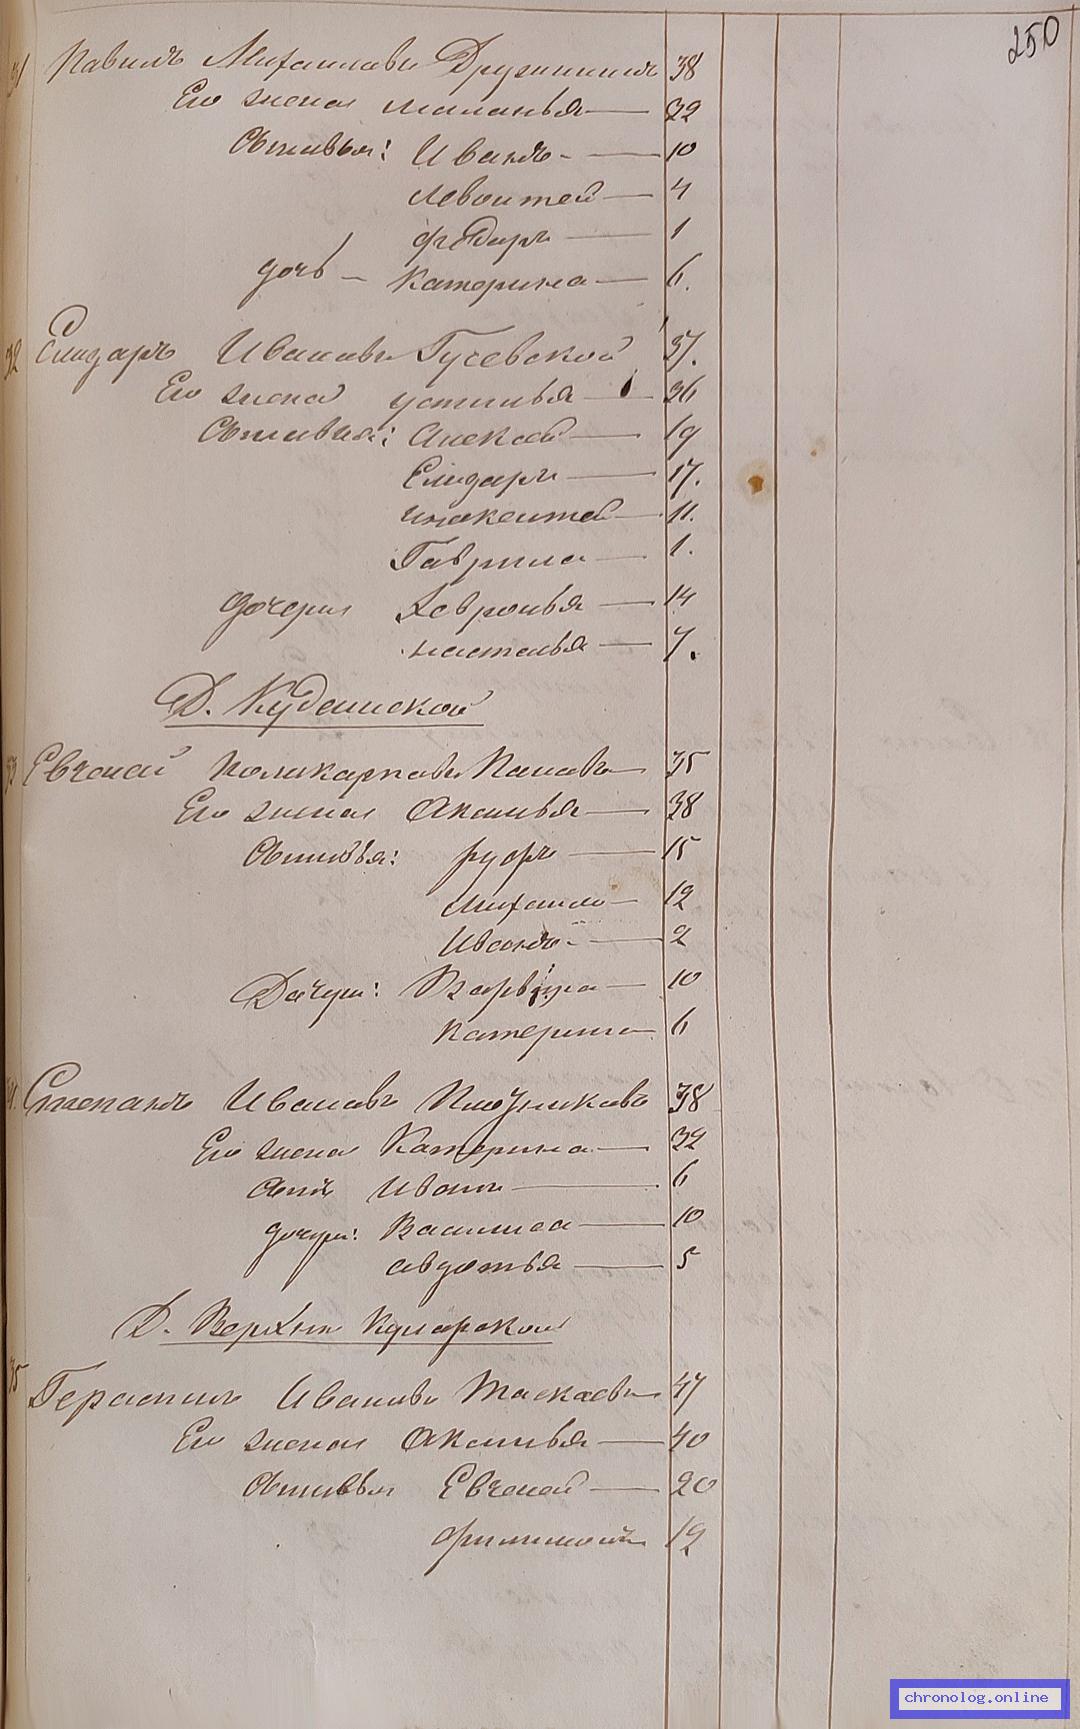 250
31 Павилъ Михаилавъ Дружининъ 38
Его жена маланья 32
Сыновья: Иванъ 10
Левонтей 4
фёдаръ 1
дочь – Катерина 6.
32 Сидаръ Ивановъ Гусевской 37.
Его жена устинья 36
Сыновья: Алексей 19
Сидаръ 17.
инокентей 11.
Гаврила 1.
дочери Хевронья 14
насталья 7.
Д. Кудаинской
33 Евгеней Поликарпавъ Панавъ 35
Его жена Аксинья 38
Сыновья: руфъ 15
Михаило 12
Иванъ 2
Дочери: Варвара 10
Катерина 6
Степанъ Ивановъ Плотниковъ 38
Его жена Катерина 32
сынъ Иванъ 6
дочери: Василиса 10
авдотья 5
Д. Верхни Куларской
35 Герасимъ Ивановъ Таскаевъ 47
Его жена Аксинья 40
Сыновья Евгеней 20
филимонъ 12
chronolog.online